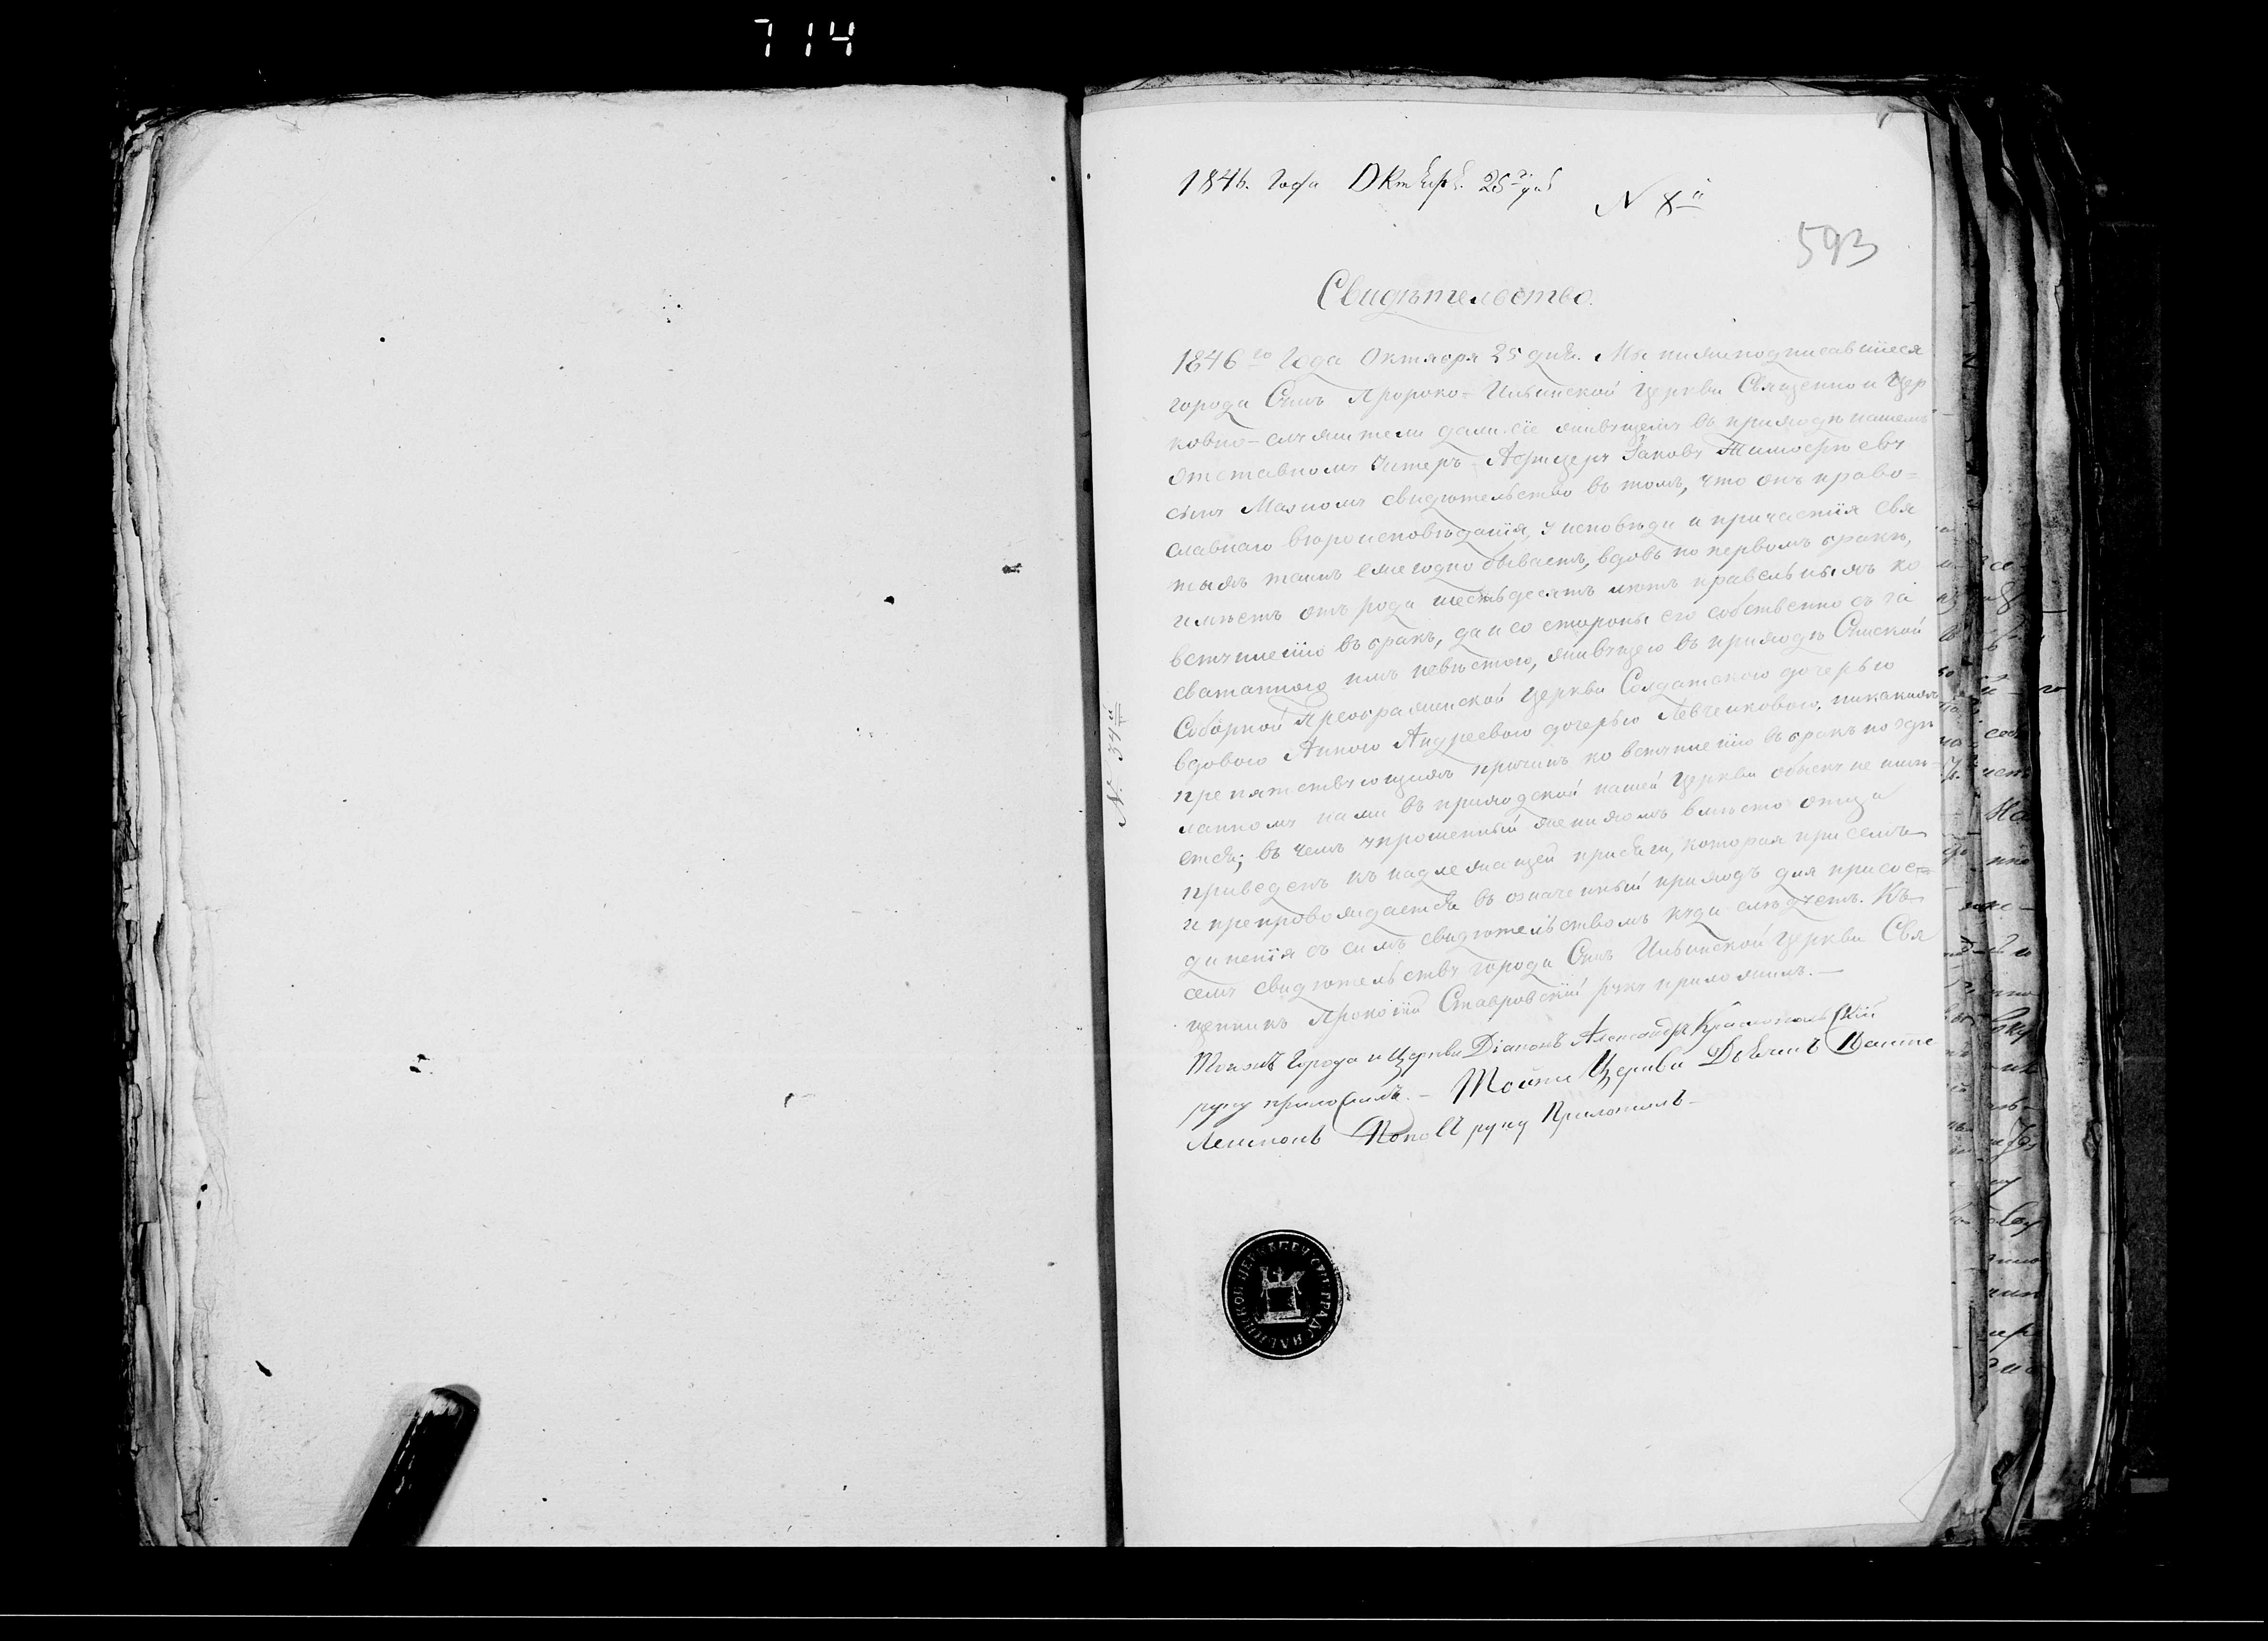 714
1846. Года Октября 25го дня
N 8й
593
Свидѣтельство.
1846го Года Октября 25 дня. Мы нижеподписавшіеся
города Омъ Пророко-Ильинской Церкви Священно и Цер
ковно-служители дали сіе живущему въ приходѣ нашемъ
отставному Унтеръ-Афицеру Іакову Тимофѣеву
сыну свидѣтельство въ томъ, что онъ право=
славнаго вѣроисповѣданія, у исповѣди и причастія свя
тыхъ таинъ ежегодно бываетъ, вдовъ по первомъ бракѣ,
имѣетъ отъ рода шестьдесятъ лѣтъ правельныхъ ко
вступленію въ бракъ, да и со стороны его собственно съ за
сватанною имъ невѣстою, живущею въ приходѣ Омской
Соборной Преображенской Церкви Солдатскою дочерью
вдовою Анною Андреевою дочерью Левченковою, никакихъ
препятствующихъ причинъ ко вступленію въ бракъ по здѣ
ланному нами въ приходской нашей Церкви обыску не имѣ-
ется; въ чемъ упрошенный женихомъ вмѣсто отца
приведенъ къ надлежащей присяги, которая при семъ
и препровождается въ означенный приходъ для присое=
диненія съ симъ свидѣтельствомъ куда слѣдуетъ. Къ
сему свидѣтельству города Омъ Ильинской Церкви Свя
щенникъ Прокопій Ставровскій руку приложилъ.—
Тогожъ Города и Церкви Діаконъ Александръ Краснопольскій
руку приложилъ.— Тойже Церкви Дьячекъ
Поповъ руку Приложилъ—
N. 34й